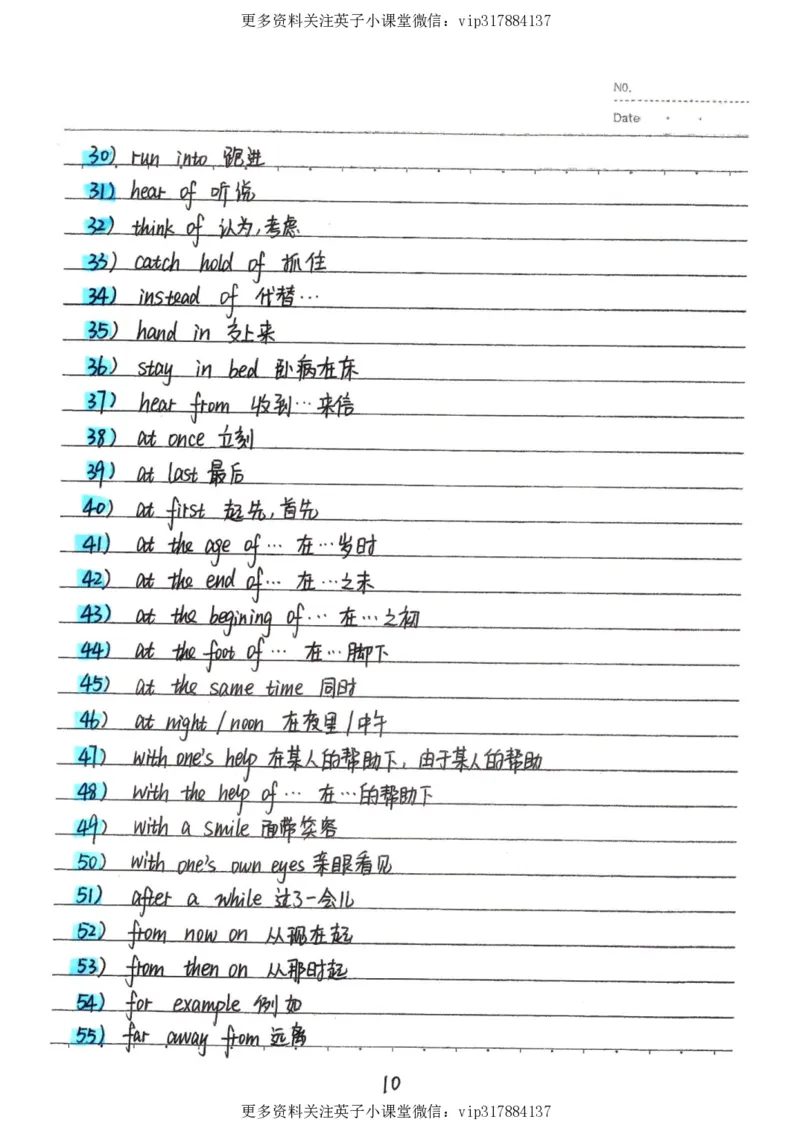 更多资料关注英子小课堂微信：vip317884137
NO.
Date
30) run into 跑进
31) hear of 听说
32) think of 认为,考虑
33) catch hold of 抓住
34) instead of 代替…
35) hand in 交上来
36) stay in bed 卧病在床
37) hear from 收到…来信
38) at once 立刻
39) at last 最后
40) at first 起先,首先
41) at the age of … 在…岁时
42) at the end of … 在…之末
43) at the begining of … 在…之初
44) at the foot of … 在…脚下
45) at the same time 同时
46) at night / noon 在夜里 / 中午
47) with one's help 在某人的帮助下, 由于某人的帮助
48) with the help of … 在…的帮助下
49) with a smile 面带笑容
50) with one's own eyes 亲眼看见
51) after a while 过了一会儿
52) from now on 从现在起
53) from then on 从那时起
54) for example 例如
55) far away from 远离
10
更多资料关注英子小课堂微信：vip317884137